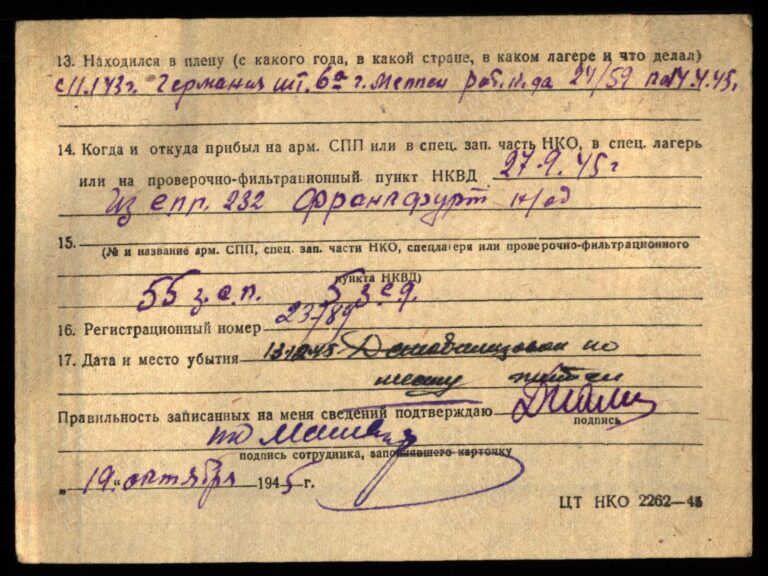 13. Находился в плену (с какого года, в какой стране, в каком лагере и что делал)
Германия шт. 6а г. Меппен раб. к-да 24/59
14. Когда и откуда прибыл на арм. СПП или в спец. зап. часть НКО, в спец. лагерь
или на проверочно-фильтрационный пункт НКВД 27.9.45 г
Из спп. 232 Франкфурт н/од
15.
(№ и название арм. СПП, спец. зап. части НКО, спецлагеря или проверочно-фильтрационного
пункта НКВД)
55 з.с.п. 5 з.с.д.
16. Регистрационный номер 23789
17. Дата и место убытия по
месту
Правильность записанных на меня сведений подтверждаю
подпись
подпись сотрудника, заполнявшего карточку
„19" октября 1945 г.
ЦТ НКО 2262—45